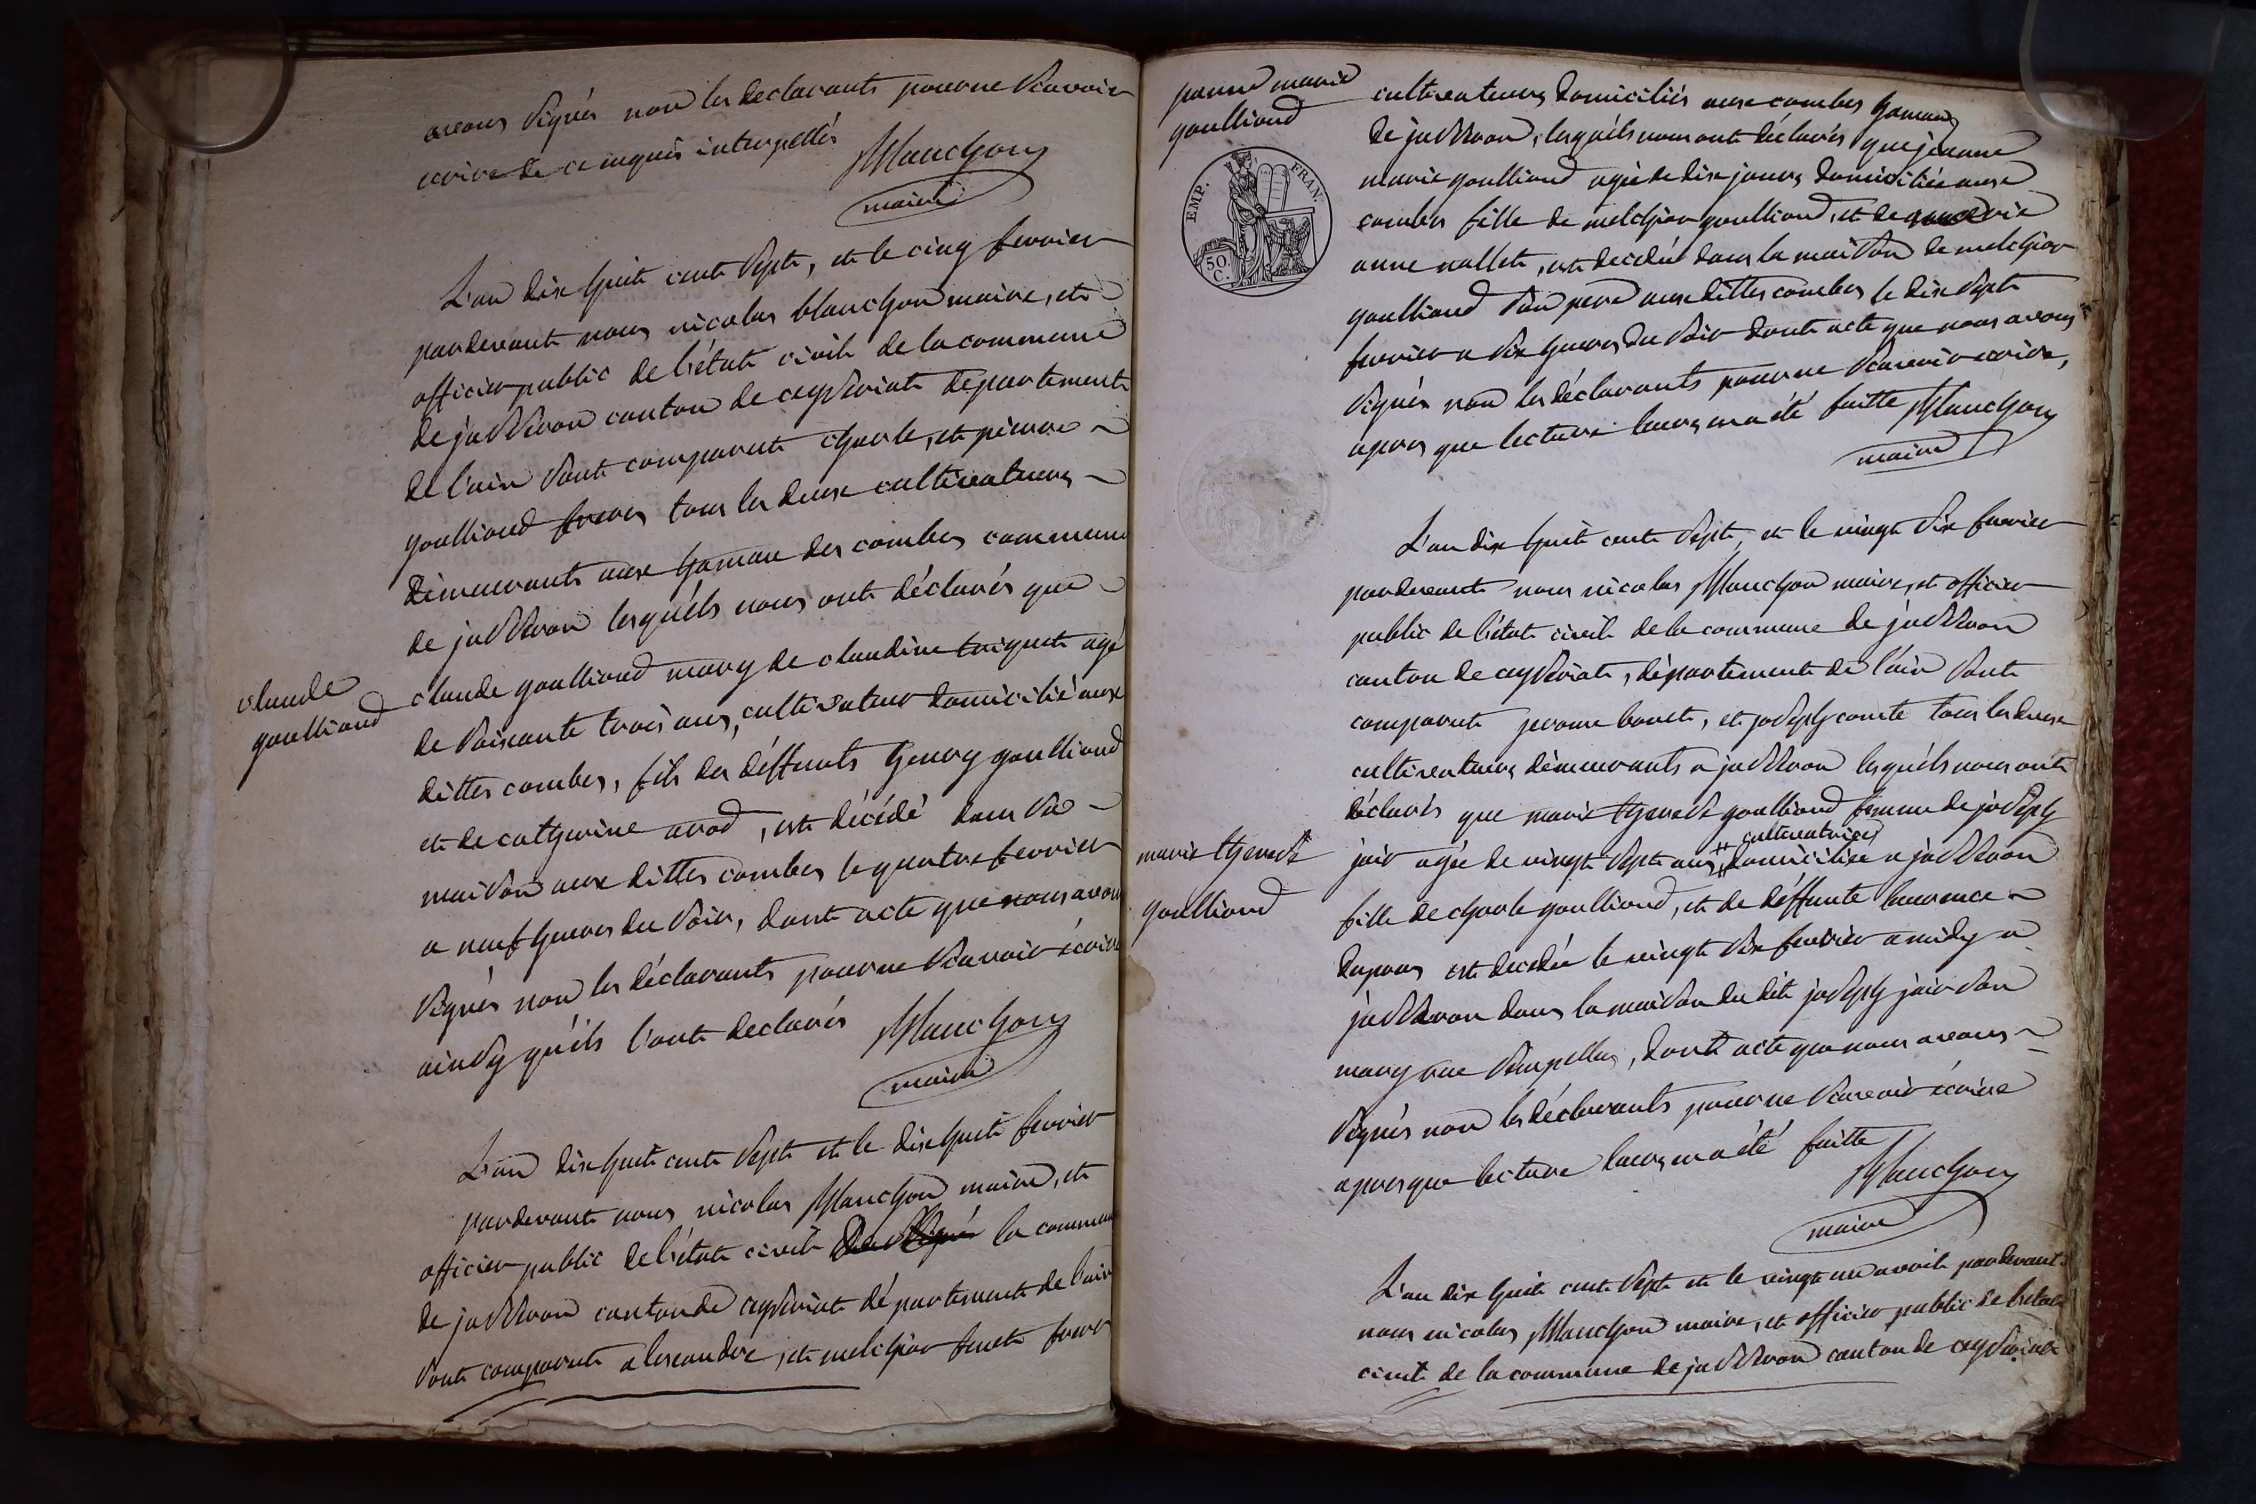 avons signés non les declarants pour ne scavoir
ecrire de ce enquis interpellés
Blanchon
maire
L'an dix huit cent sept, et le cinq fevrier
pardevant nous nicolas blanchon maire, et
officier public de l'état civil de la commune
de jasseron canton de ceyseriat departement
de l'ain sont comparut charle, et pierre
goulliond freres tous les deux cultivateurs
demeurants aux hamau des combes commune
de jasseron lesquéls nous ont déclarés que
claude goulliond mary de claudine triquet agé
de soixante trois ans, cultivateur domicilié aux
dittes combes, fils des déffunts henry goulliond
et de catherine avod, est décédé dans sa
maison aux dittes combes le quatre fevrier
a neuf heures du soir, dont acte que nous avons
signés non les déclarants pour ne scavoir écrire
ainsy qu'ils l'ont declarés Blanchon
maire
claude
goulliond
L'an dix huit cent sept et le dix huit fevrier
pardevant nous nicolas Blanchon maire, et
officier public de l'état civil la commune
de jasseron canton de ceyseriat département de l'ain
sont comparut alexandre, et melchior freres
jeanne marie
goulliond
EMP. FRAN.
50 C.
cultivateurs domiciliés aux combes hamau
de jasseron, lesquéls nous ont déclarés que jeanne
marie goulliond agée de dix jours domiciliée aux
combes fille de melchior goulliond, et de marie
anne nallet, est decedée dans la maison de melchior
goulliond son pere aux dittes combes le dix sept
fevrier a six heures du soir dont acte que nous avons
signés non les déclarants pour ne scavoir ecrire,
apres que lecture leurs en a été faitte Blanchon
maire
L'an dix huit cent sept, et le vingt six fevrier
pardevant nous nicolas Blanchon maire, et officier
public de l'état civil de la commune de jasseron
canton de ceyseriat, département de l'ain sont
comparut jerome et joseph comte tous les deux
cultivateurs demeurants a jasseron lesquéls nous ont
déclarés que marie therese goulliond femme de joseph
cultivatrice
join agée de vingt sept ans, domiciliée a jasseron
fille de charle goulliond, et de déffunte laurence
dupras est decedée le vingt six fevrier a midy a
jasseron dans la maison du dit joseph join son
mary rue dont acte que nous avons
signés non les déclarants pour ne scavoir écrire
apres que lecture leurs en a été faitte
Blanchon
maire
marie therese
goulliond
L'an dix huit cent sept et le vingt un avril pardevant
nous nicolas Blanchon maire, et officier public de l'etat
civil de la commune de jasseron canton de ceyseriat